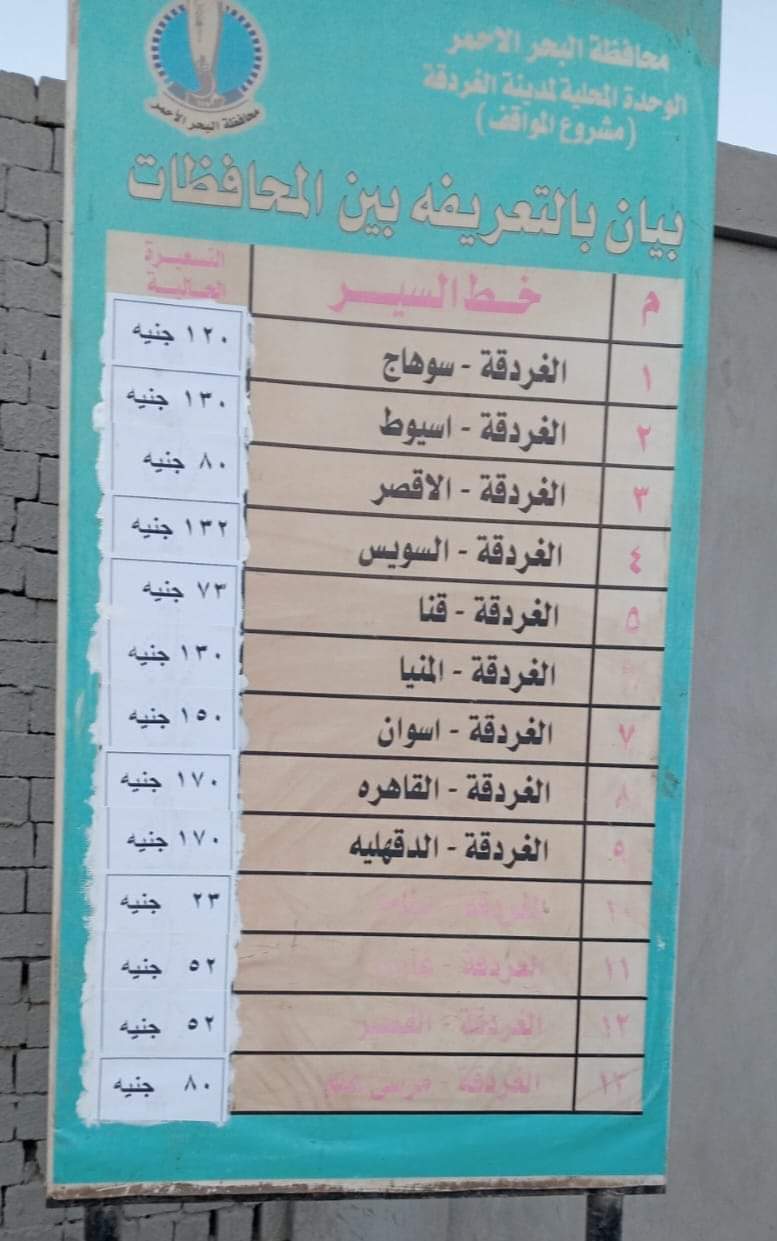 محافظة البحر الأحمر
محافظة البحر الاحمر
الوحدة المحلية لمدينة الغردقة
(مشروع المواقف)
بيان بالتعريفه بين المحافظات
م خط السير التسعيرة الحالية
١ الغردقة - سوهاج ١٢٠ جنيه
٢ الغردقة - اسيوط ١٣٠ جنيه
٣ الغردقة - الاقصر ٨٠ جنيه
٤ الغردقة - السويس ١٣٢ جنيه
٥ الغردقة - قنا ٧٣ جنيه
الغردقة - المنيا ١٣٠ جنيه
٧ الغردقة - اسوان ١٥٠ جنيه
٨ الغردقة - القاهره ١٧٠ جنيه
الغردقة - الدقهليه ١٧٠ جنيه
١٠ الغردقة - ٢٣ جنيه
١١ الغردقة - ٥٢ جنيه
١٢ الغردقة - القصير ٥٢ جنيه
١٣ الغردقة - مرسى علم ٨٠ جنيه